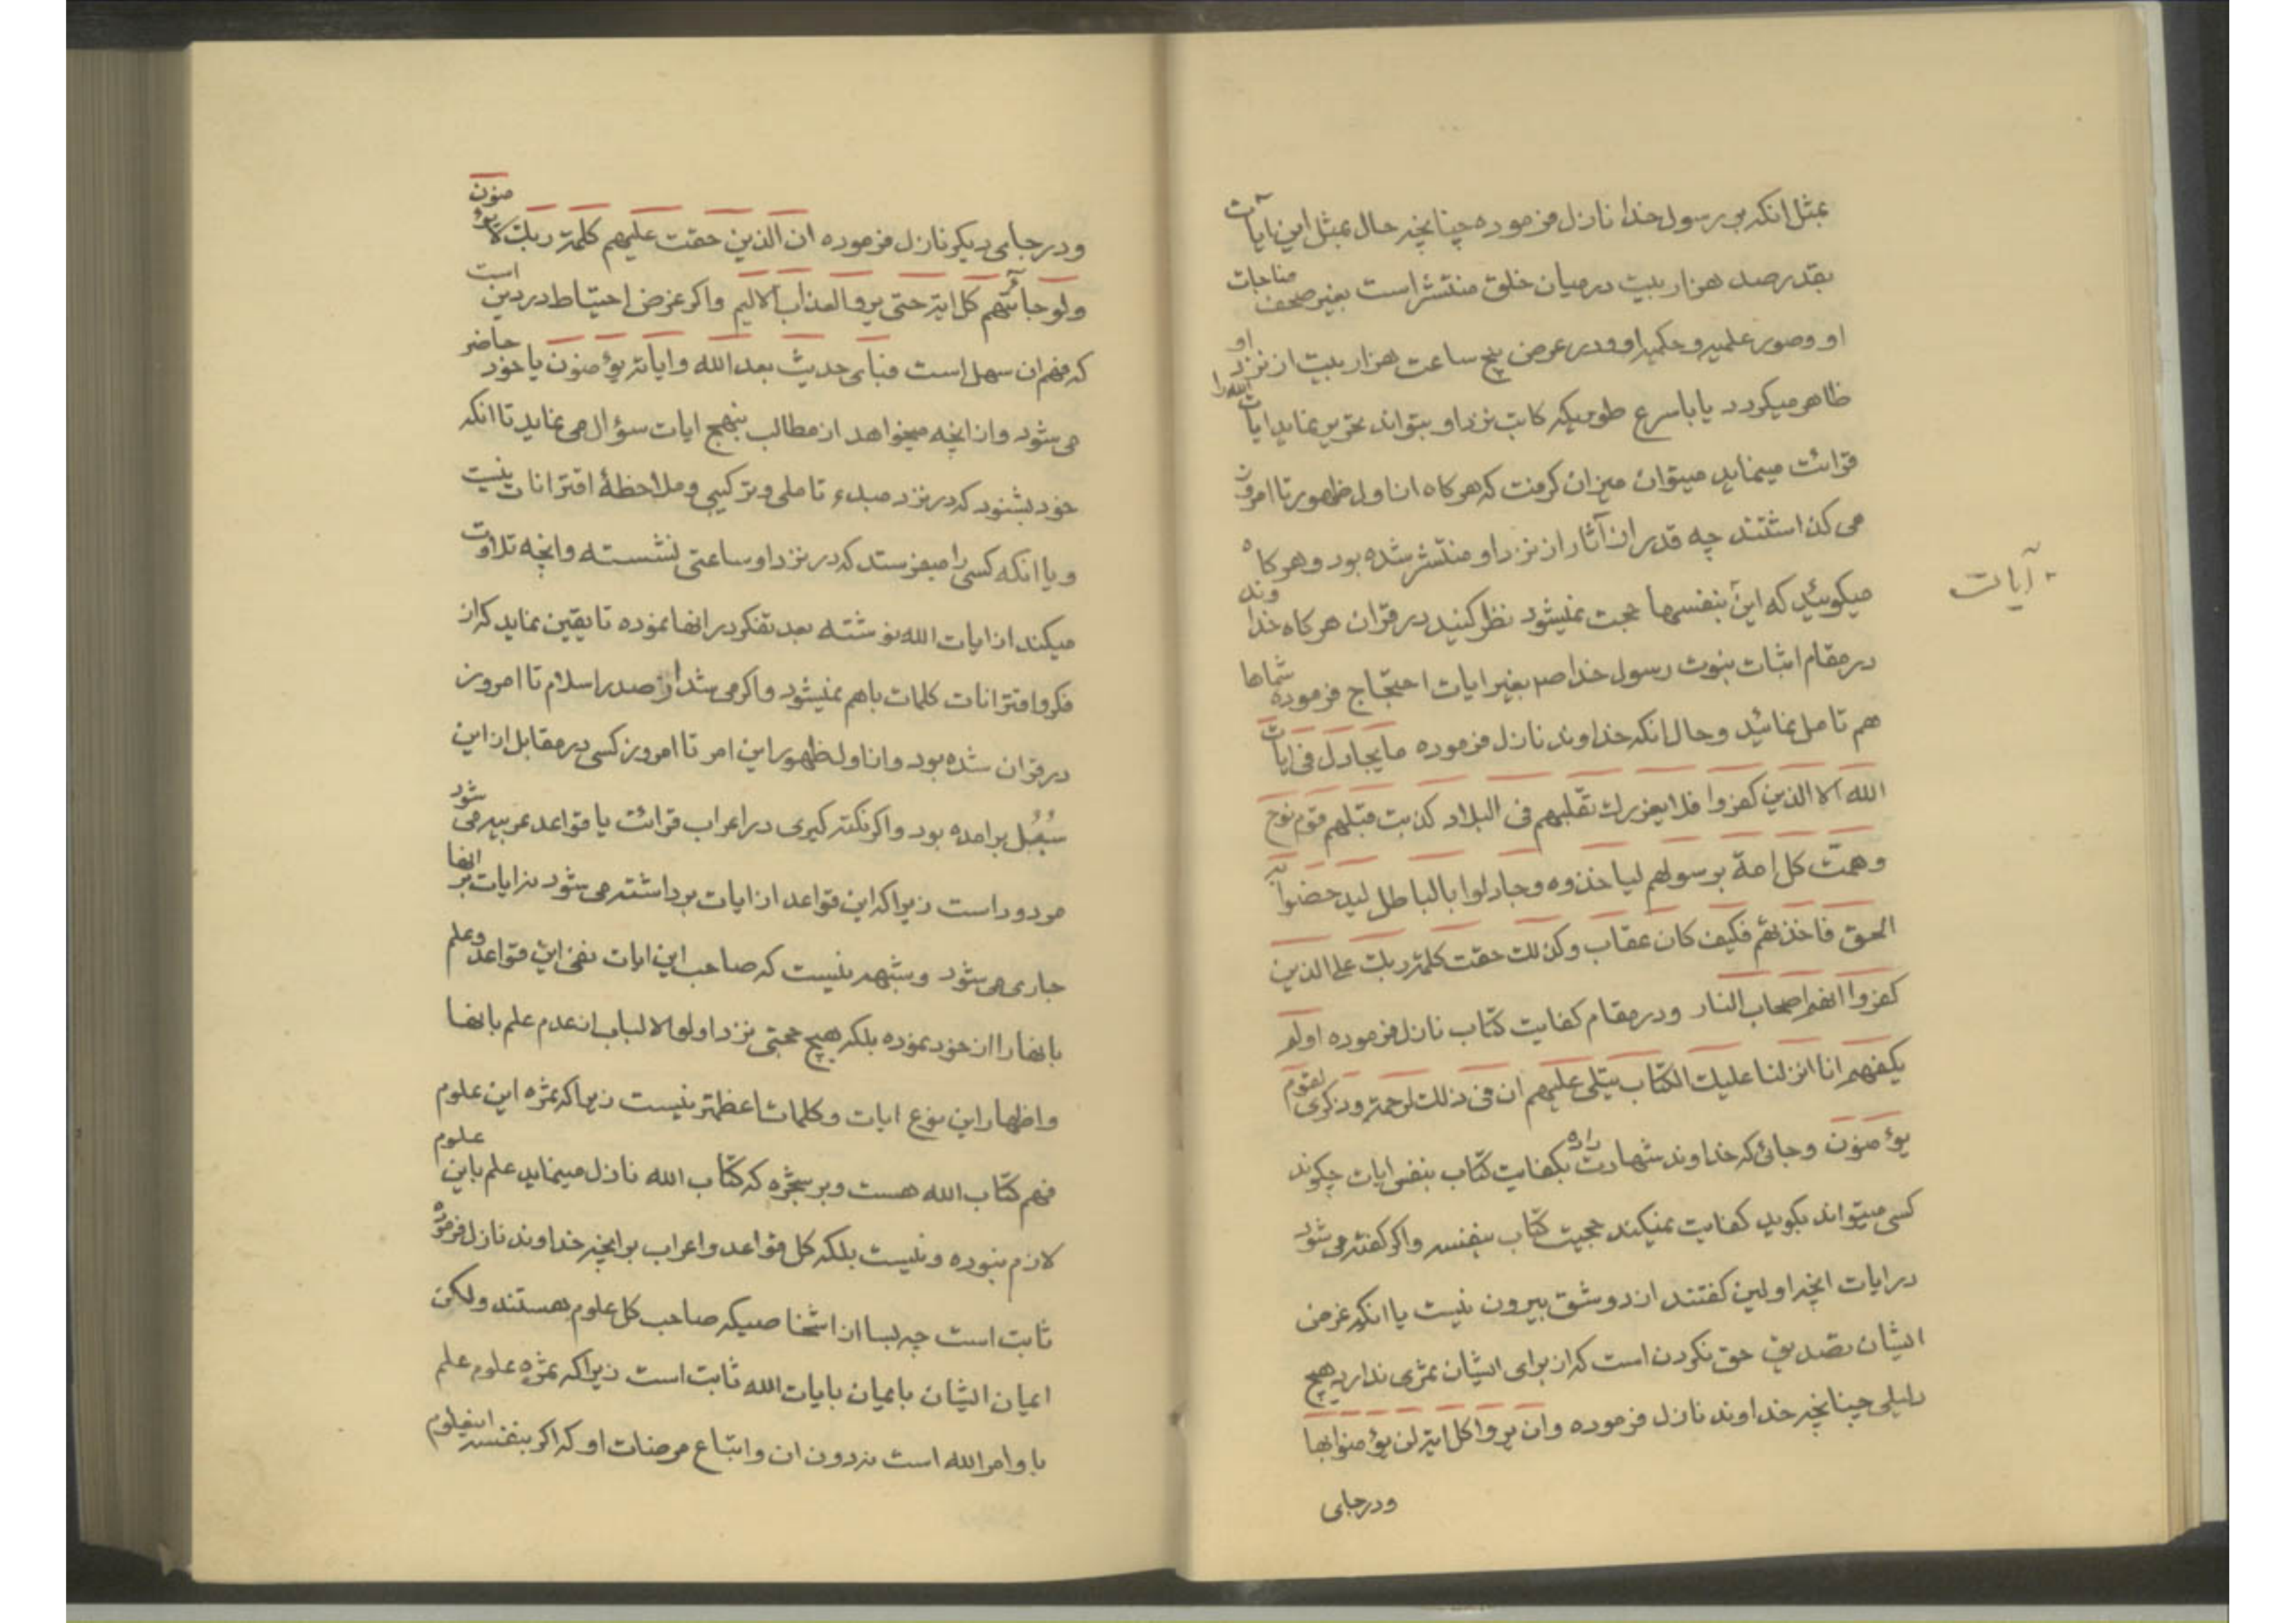 بمثل انکه بر رسول خدا نازل فرموده چنانچه حال بمثل این ایات
بقدر صد هزار بیت در میان خلق منتشر است بغیر صحف مناجات
او و صور علمیه و حکمیه او و در عرض پنج ساعت هزار بیت از نزد او
ظاهر میکردد یا باسرع طوریکه کاتب نزد او بتواند تحریر نماید ایات الله را
قرائت مینماید میتوان میزان کرفت که هرکاه از اول ظهور تا امروز
می کذاشتند چه قدر از آثار از نزد او منتشر شده بود و هرکاه
میکوئید که این بنفسها حجت نمیشود نظر کنید در قران هرکاه خداوند
در مقام اثبات نبوت رسول خدا ص بغیر ایات احتجاج فرموده شماها
هم تامل نمائید و حال انکه خداوند نازل فرموده ما یجادل فی ایات
الله الا الذین کفروا فلا یغررک تقلبهم فی البلاد کذبت قبلهم قوم نوح
و همّت کل امة برسولهم لیاخذوه و جادلوا بالباطل لیدحضوا به
الحق فاخذتهم فکیف کان عقاب و کذلک حقت کلمة ربک علی الذین
کفروا انهم اصحاب النار و در مقام کفایت کتاب نازل فرموده اولم
یکفهم انا انزلنا علیک الکتاب یتلی علیهم ان فی ذلک لرحمة و ذکری لقوم
یؤمنون و جائی که خداوند شهادت داده بکفایت کتاب بنفس ایات چکونه
کسی میتواند بکوید کفایت نمیکند حجیت کتاب بنفسه و اکر کفته می شود
در ایات انچه اولین کفتند از دو شق بیرون نیست یا انکه غرض
ایشان تصدیق حق نکردن است که از برای ایشان ثمری ندارد هیچ
دلیلی چنانچه خداوند نازل فرموده و ان یروا کل ایة لن یؤمنوا بها
و در جای
آیات
و در جای دیکر نازل فرموده ان الذین حقت علیهم کلمة ربک لا یؤمنون
ولو جائتهم کل ایة حتی یروا العذاب الالیم و اکر غرض احتیاط در دین است
که فهم ان سهل است فبای حدیث بعد الله و ایاته یؤمنون یا خود حاضر
می شود و از انچه میخواهد از مطالب بنهج ایات سؤال می نماید تا انکه
خود بشنود که در نزد مبدء تاملی و ترکیبی و ملاحظهٔ اقترانات نیست
و یا انکه کسی را میفرستد که در نزد او ساعتی نشسته و انچه تلاوت
میکند از ایات الله نوشته بعد تفکر در انها نموده تا یقین نماید که از
فکر و اقترانات کلمات باهم نمیشود و اکر می شد از صدر اسلام تا امروز
در قران شده بود و از اول ظهور این امر تا امروز کسی در مقابل از این
سُبُل برامده بود و اکر نکته کیری در اعراب قرائت یا قواعد عربیه می شود
مردود است زیرا که این قواعد از ایات برداشته می شود نه ایات بر انها
جاری می شود و شبهه نیست که صاحب این ایات نفی این قواعد و علم
بانها را از خود نموده بلکه هیچ حجتی نزد اولوا الالباب از عدم علم بانها
و اظهار این نوع ایات و کلمات اعظمتر نیست زیرا که ثمره این علوم
فهم کتاب الله هست و بر شجره که کتاب الله نازل مینماید علم باین علوم
لازم نبوده و نیست بلکه کل قواعد و اعراب بر انچه خداوند نازل فرموده
ثابت است چه بسا از اشخاصیکه صاحب کل علوم هستند ولکن
ایمان ایشان بایمان بایات الله ثابت است زیرا که ثمره علوم علم
باوامر الله است نه دون ان و اتباع مرضات او که اکر بنفسه این علوم